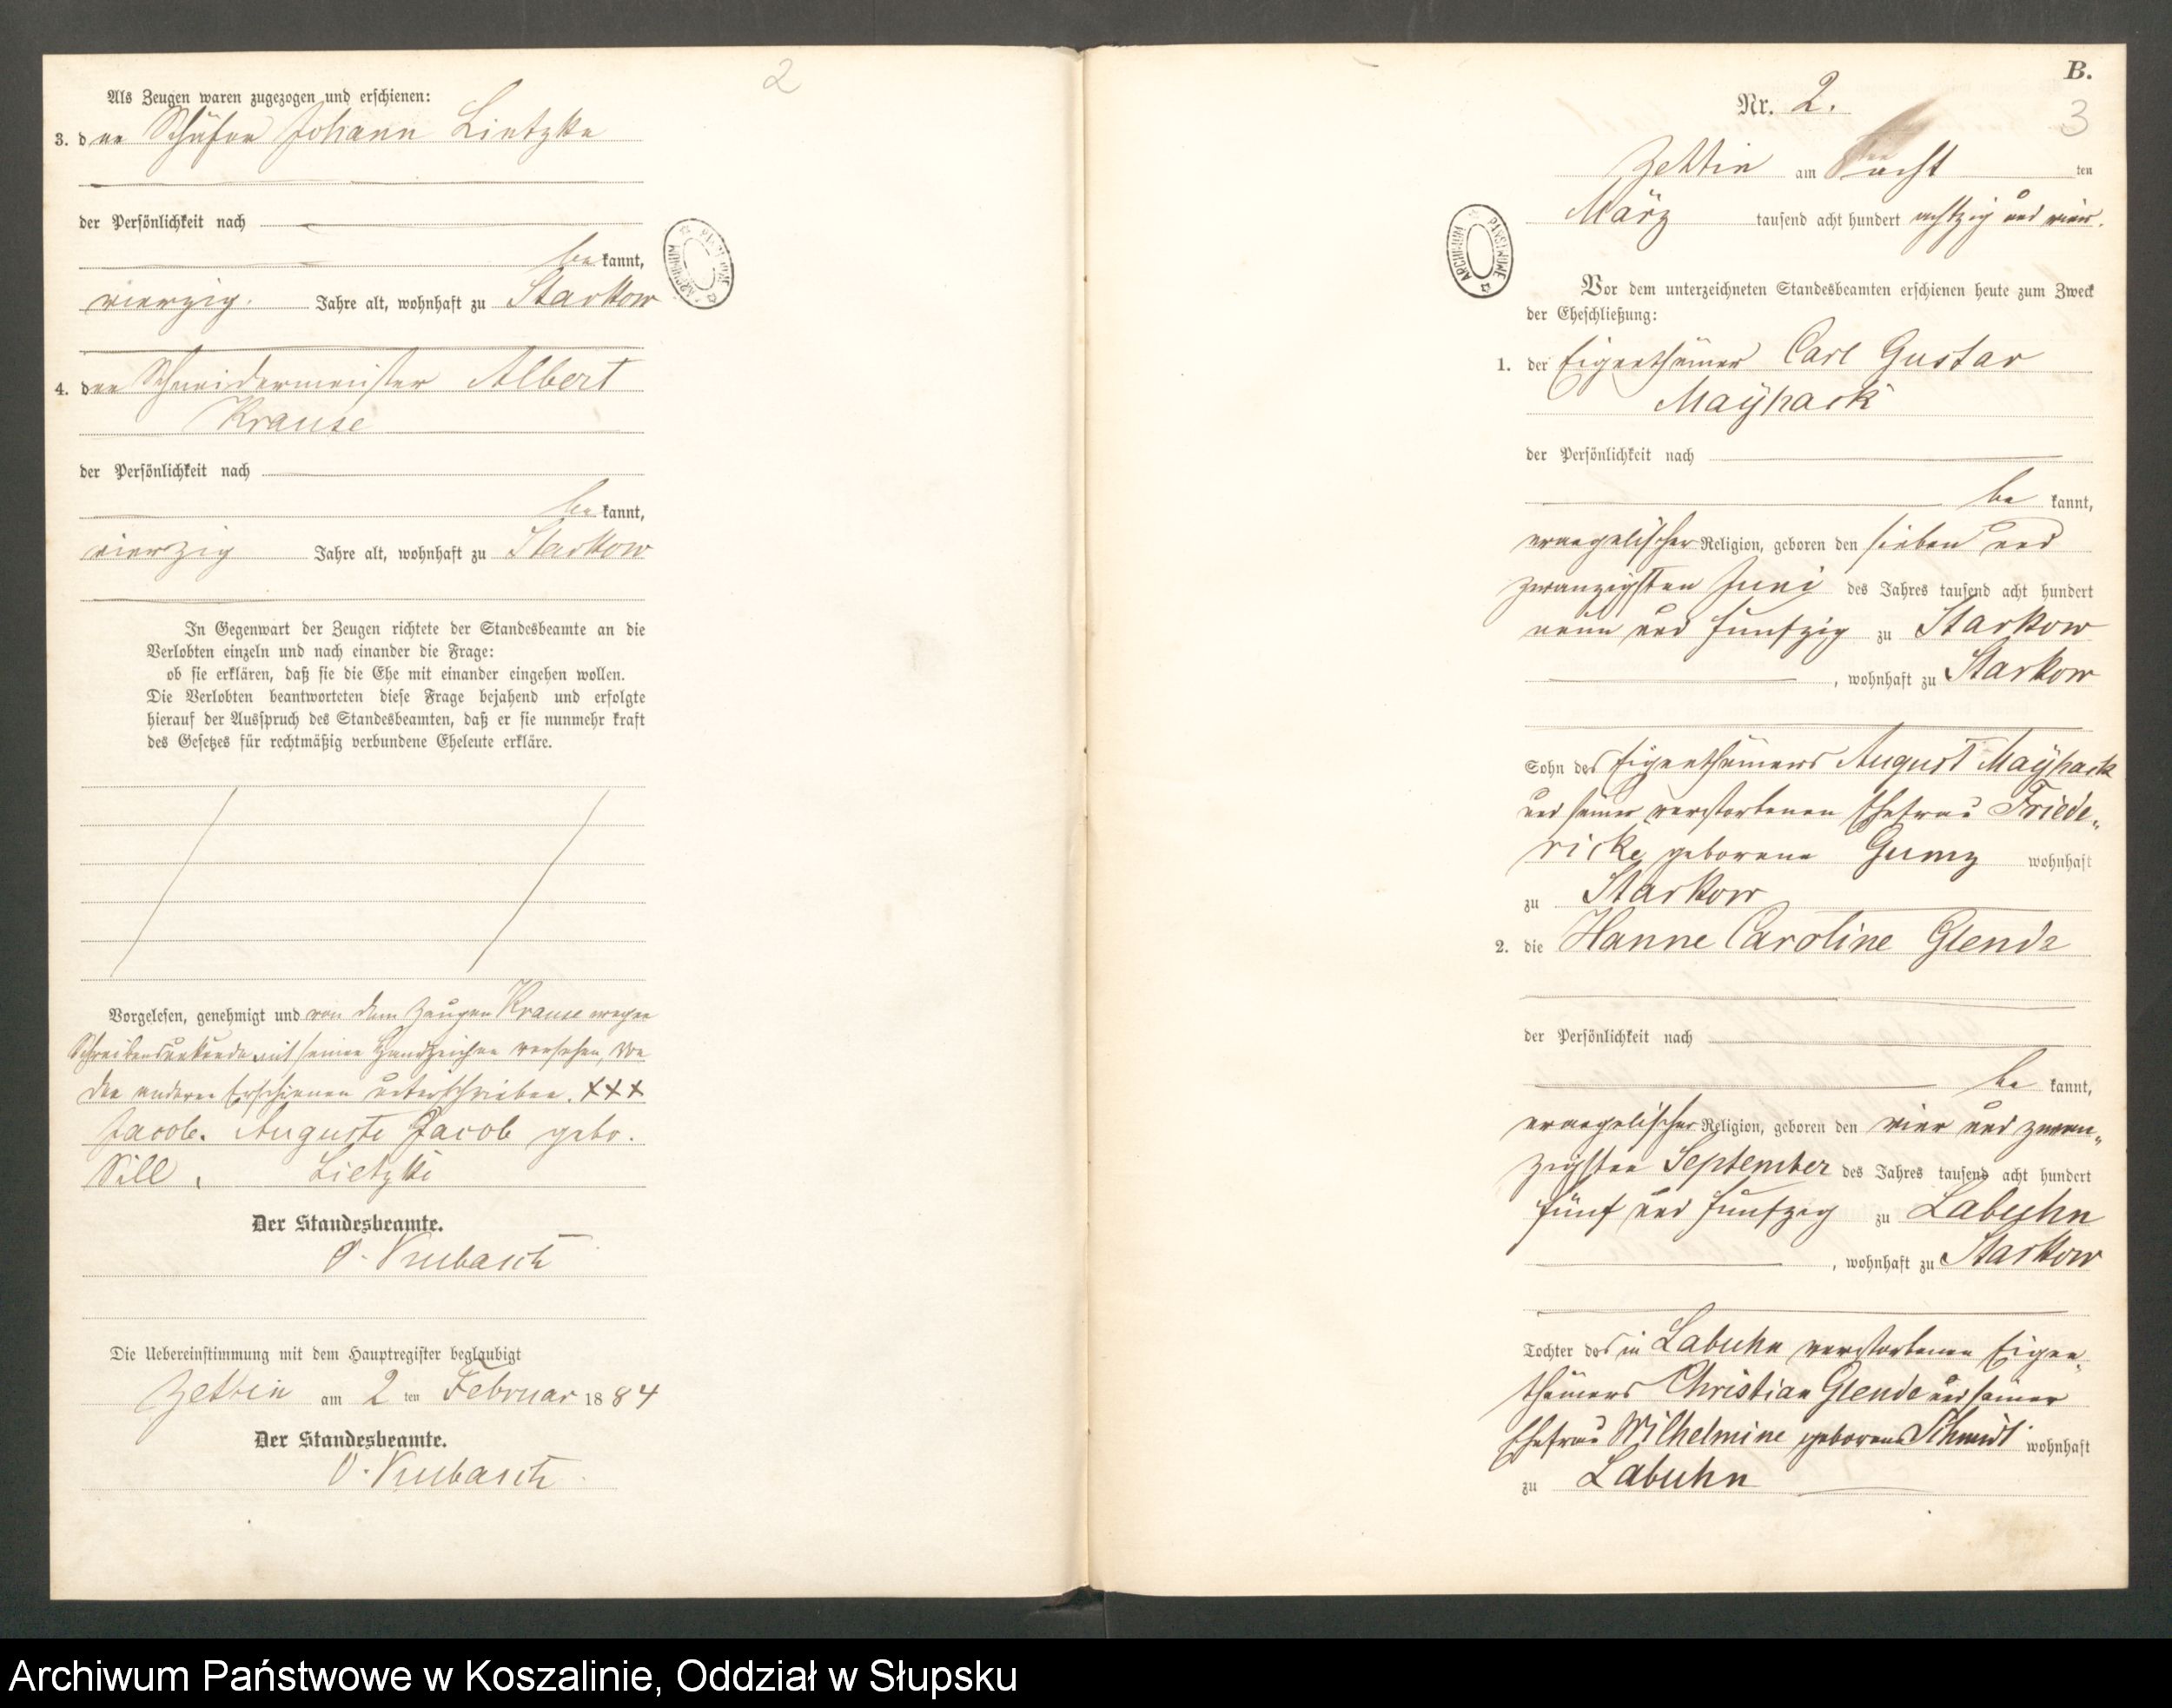 2
Als Zeugen waren zugezogen und erschienen:
3. den Schäfer Johann Lietzke
der Persönlichkeit nach
be kannt,
vierzig. Jahre alt, wohnhaft zu Starkow
4. den Schneidermeister Albert
Krause
der Persönlichkeit nach
be kannt,
vierzig Jahre alt, wohnhaft zu Starkow
In Gegenwart der Zeugen richtete der Standesbeamte an die
Verlobten einzeln und nach einander die Frage:
ob sie erklären, daß sie die Ehe mit einander eingehen wollen.
Die Verlobten beantworteten diese Frage bejahend und erfolgte
hierauf der Ausspruch des Standesbeamten, daß er sie nunmehr kraft
des Gesetzes für rechtmäßig verbundene Eheleute erkläre.
Vorgelesen, genehmigt und von dem Zeugen Krause wegen
Schreibensunkunde mit seinen Handzeichen versehen, von
den anderen Erschienen unterschrieben. XXX
Jacob. Auguste Jacob gebo.
Sill. Lietzke
Der Standesbeamte.
Die Uebereinstimmung mit dem Hauptregister beglaubigt
Zettin am 2 ten Februar 1884
Der Standesbeamte.
B.
3
Nr. 2.
Zettin am acht ten
März tausend acht hundert achtzig und vier.
Vor dem unterzeichneten Standesbeamten erschienen heute zum Zweck
der Eheschließung:
1. der Eigenthümer Carl Gustav
Mayhack
der Persönlichkeit nach
be kannt,
evangelischer Religion, geboren den sieben und
zwanzigsten Juni des Jahres tausend acht hundert
neun und funfzig zu Starkow
, wohnhaft zu Starkow
Sohn des Eigenthümers August Mayhack
und seiner verstorbenen Ehefrau Friede„
ricke geborene Gumz wohnhaft
zu Starkow
2. die Hanne Caroline Glende
der Persönlichkeit nach
be kannt,
evangelischer Religion, geboren den vier und zwan„
zigsten September des Jahres tausend acht hundert
fünf und funfzig zu Labuhn
, wohnhaft zu Starkow
Tochter des in Labuhn verstorbenen Eigen„
thümers Christian Glende und seiner
Ehefrau Wilhelmine geborene Schmidt wohnhaft
zu Labuhn
ARCHIWUM PAŃSTWOWE
Archiwum Państwowe w Koszalinie, Oddział w Słupsku